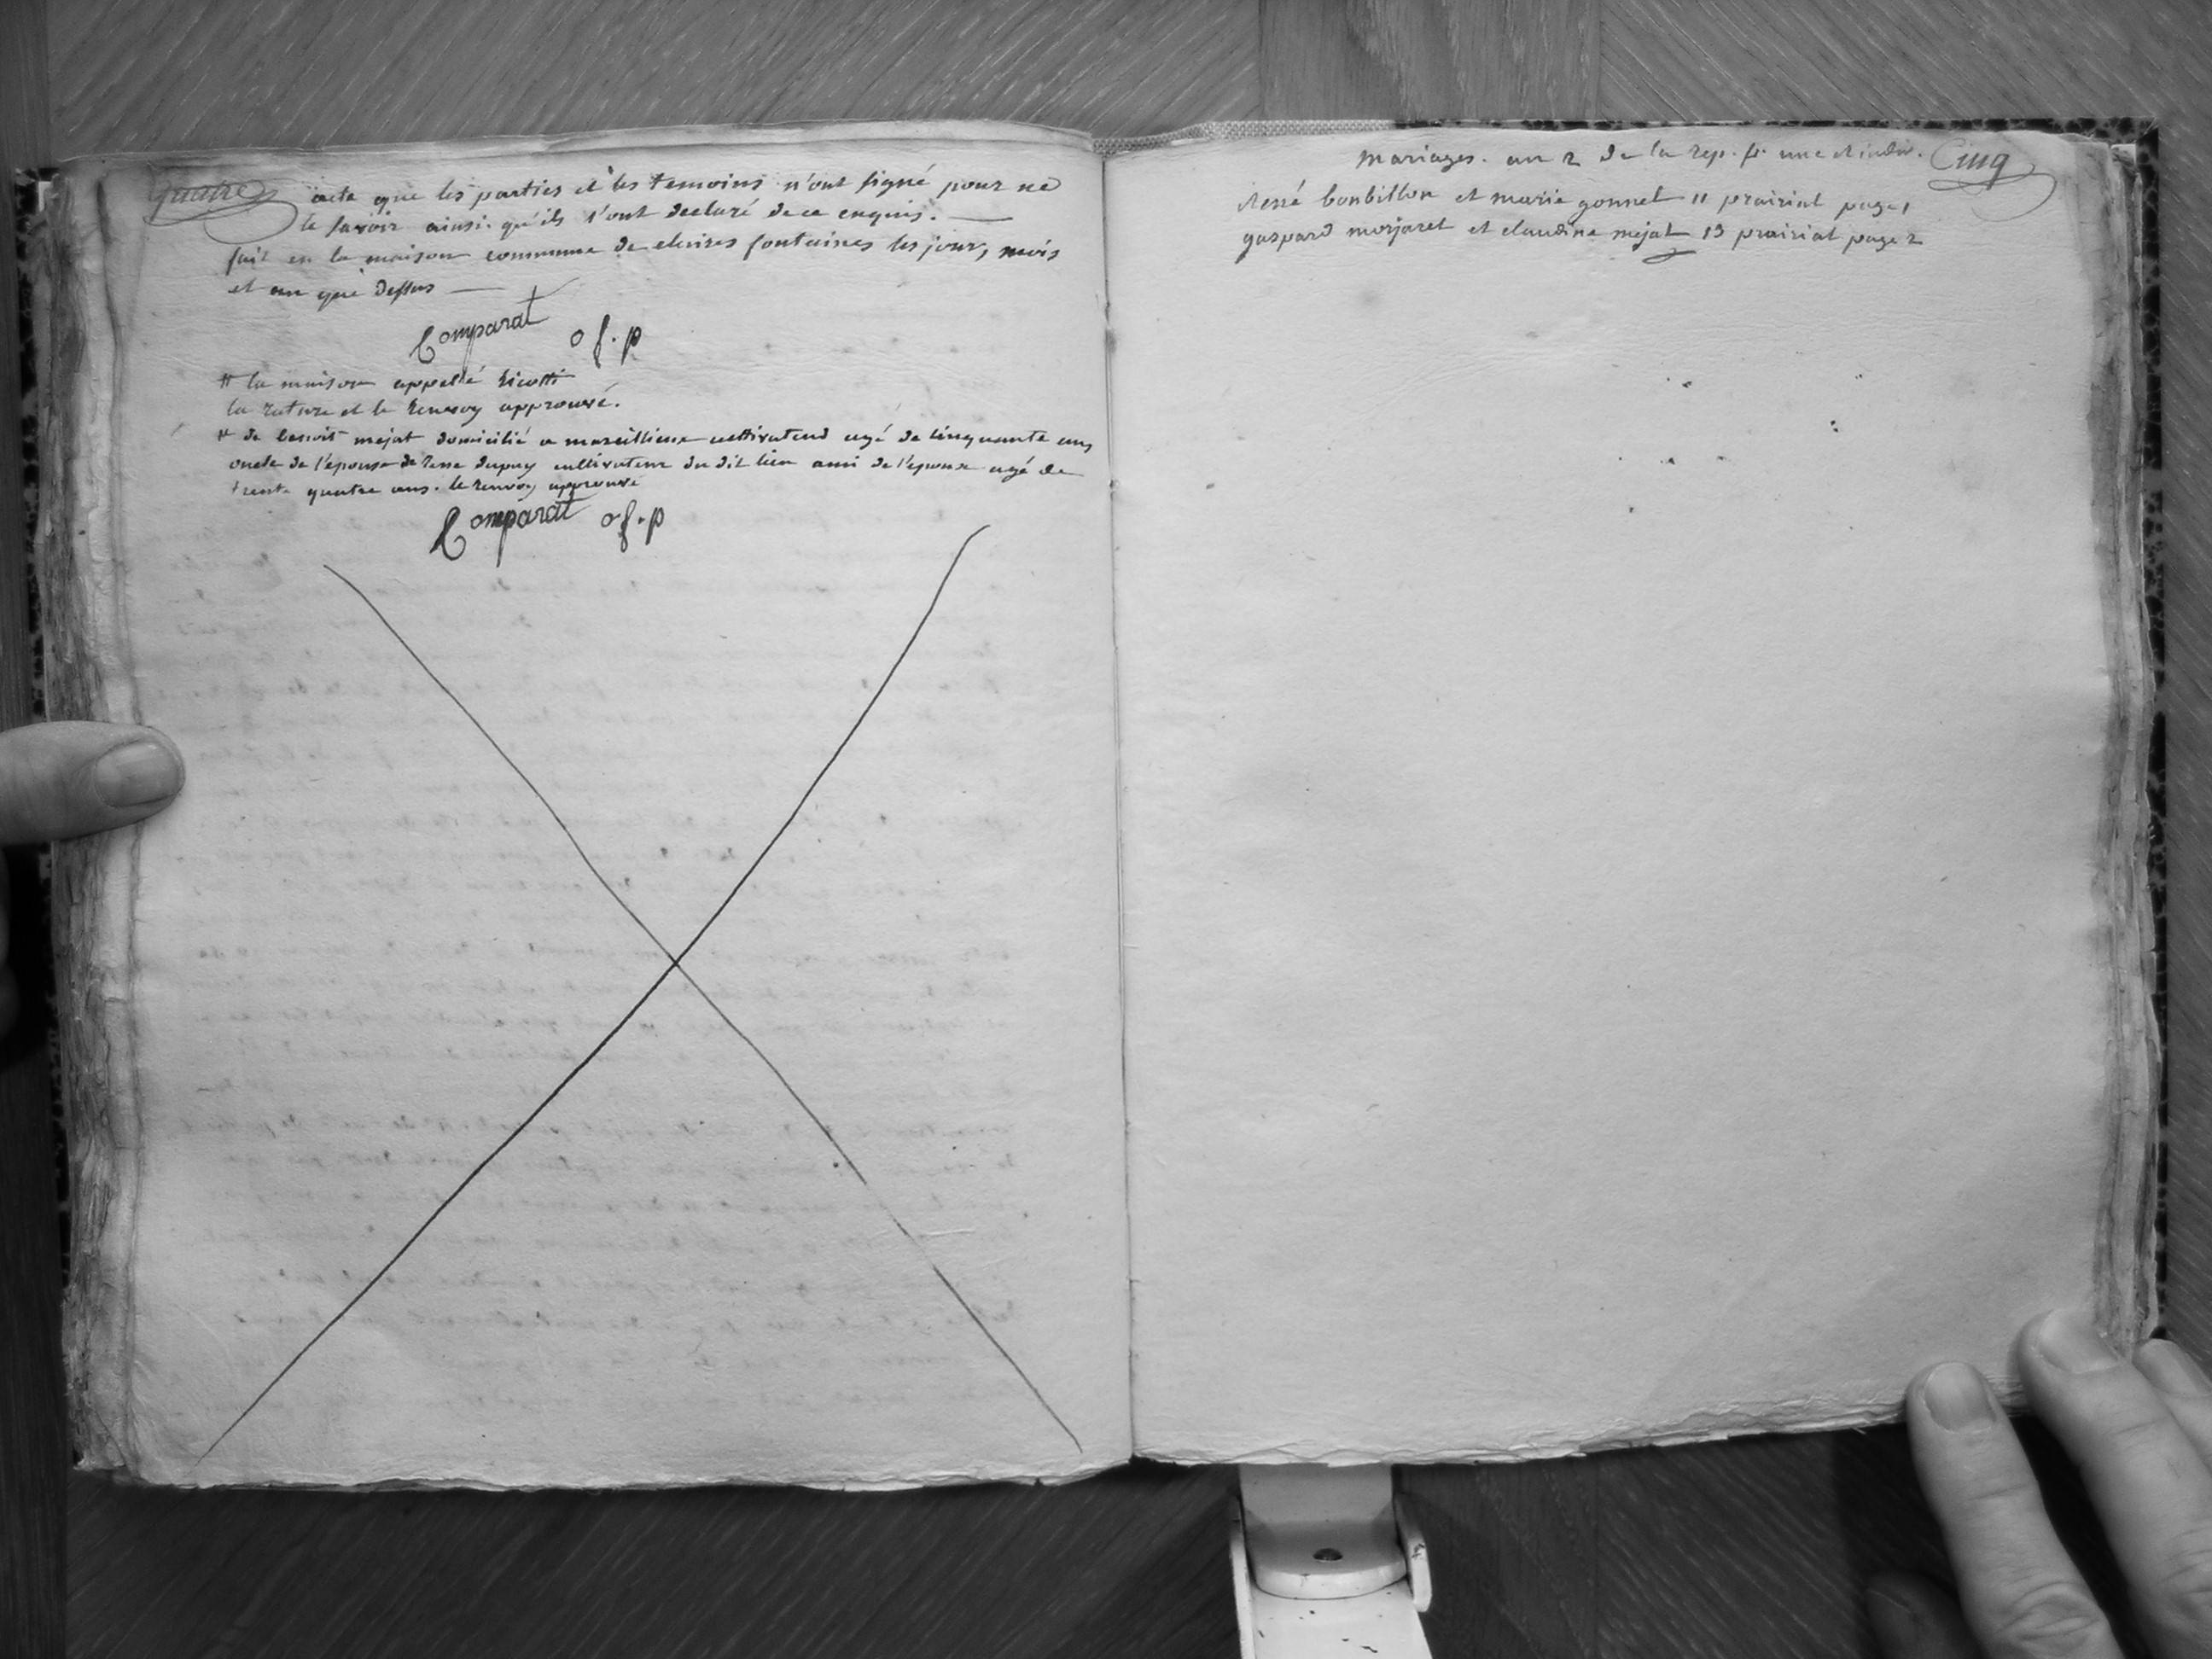 quatre
acte que les parties et les temoins n'ont signé pour ne
le savoir ainsi qu'ils l'ont declaré de ce enquis.
fait en la maison commune de claires fontaines les jour, mois
et an que dessus
Comparat of. p
# la maison appellé
la rature et le renvoy approuvé.
# de benoit mejat domicilié a marcillieux cultivateur agé de cinquante ans
oncle de l'epouse de rene dupuy cultivateur du dit lieu ami de l'epoux agé de
trente quatre ans. le renvoy approuvé
Comparat of. p
Cinq
mariages. an 2 de la rep. fr. une et indiv.
bonbillon et marie gonnet 11 prairial page 1
gaspard morjaret et claudine mejat 13 prairial page 2